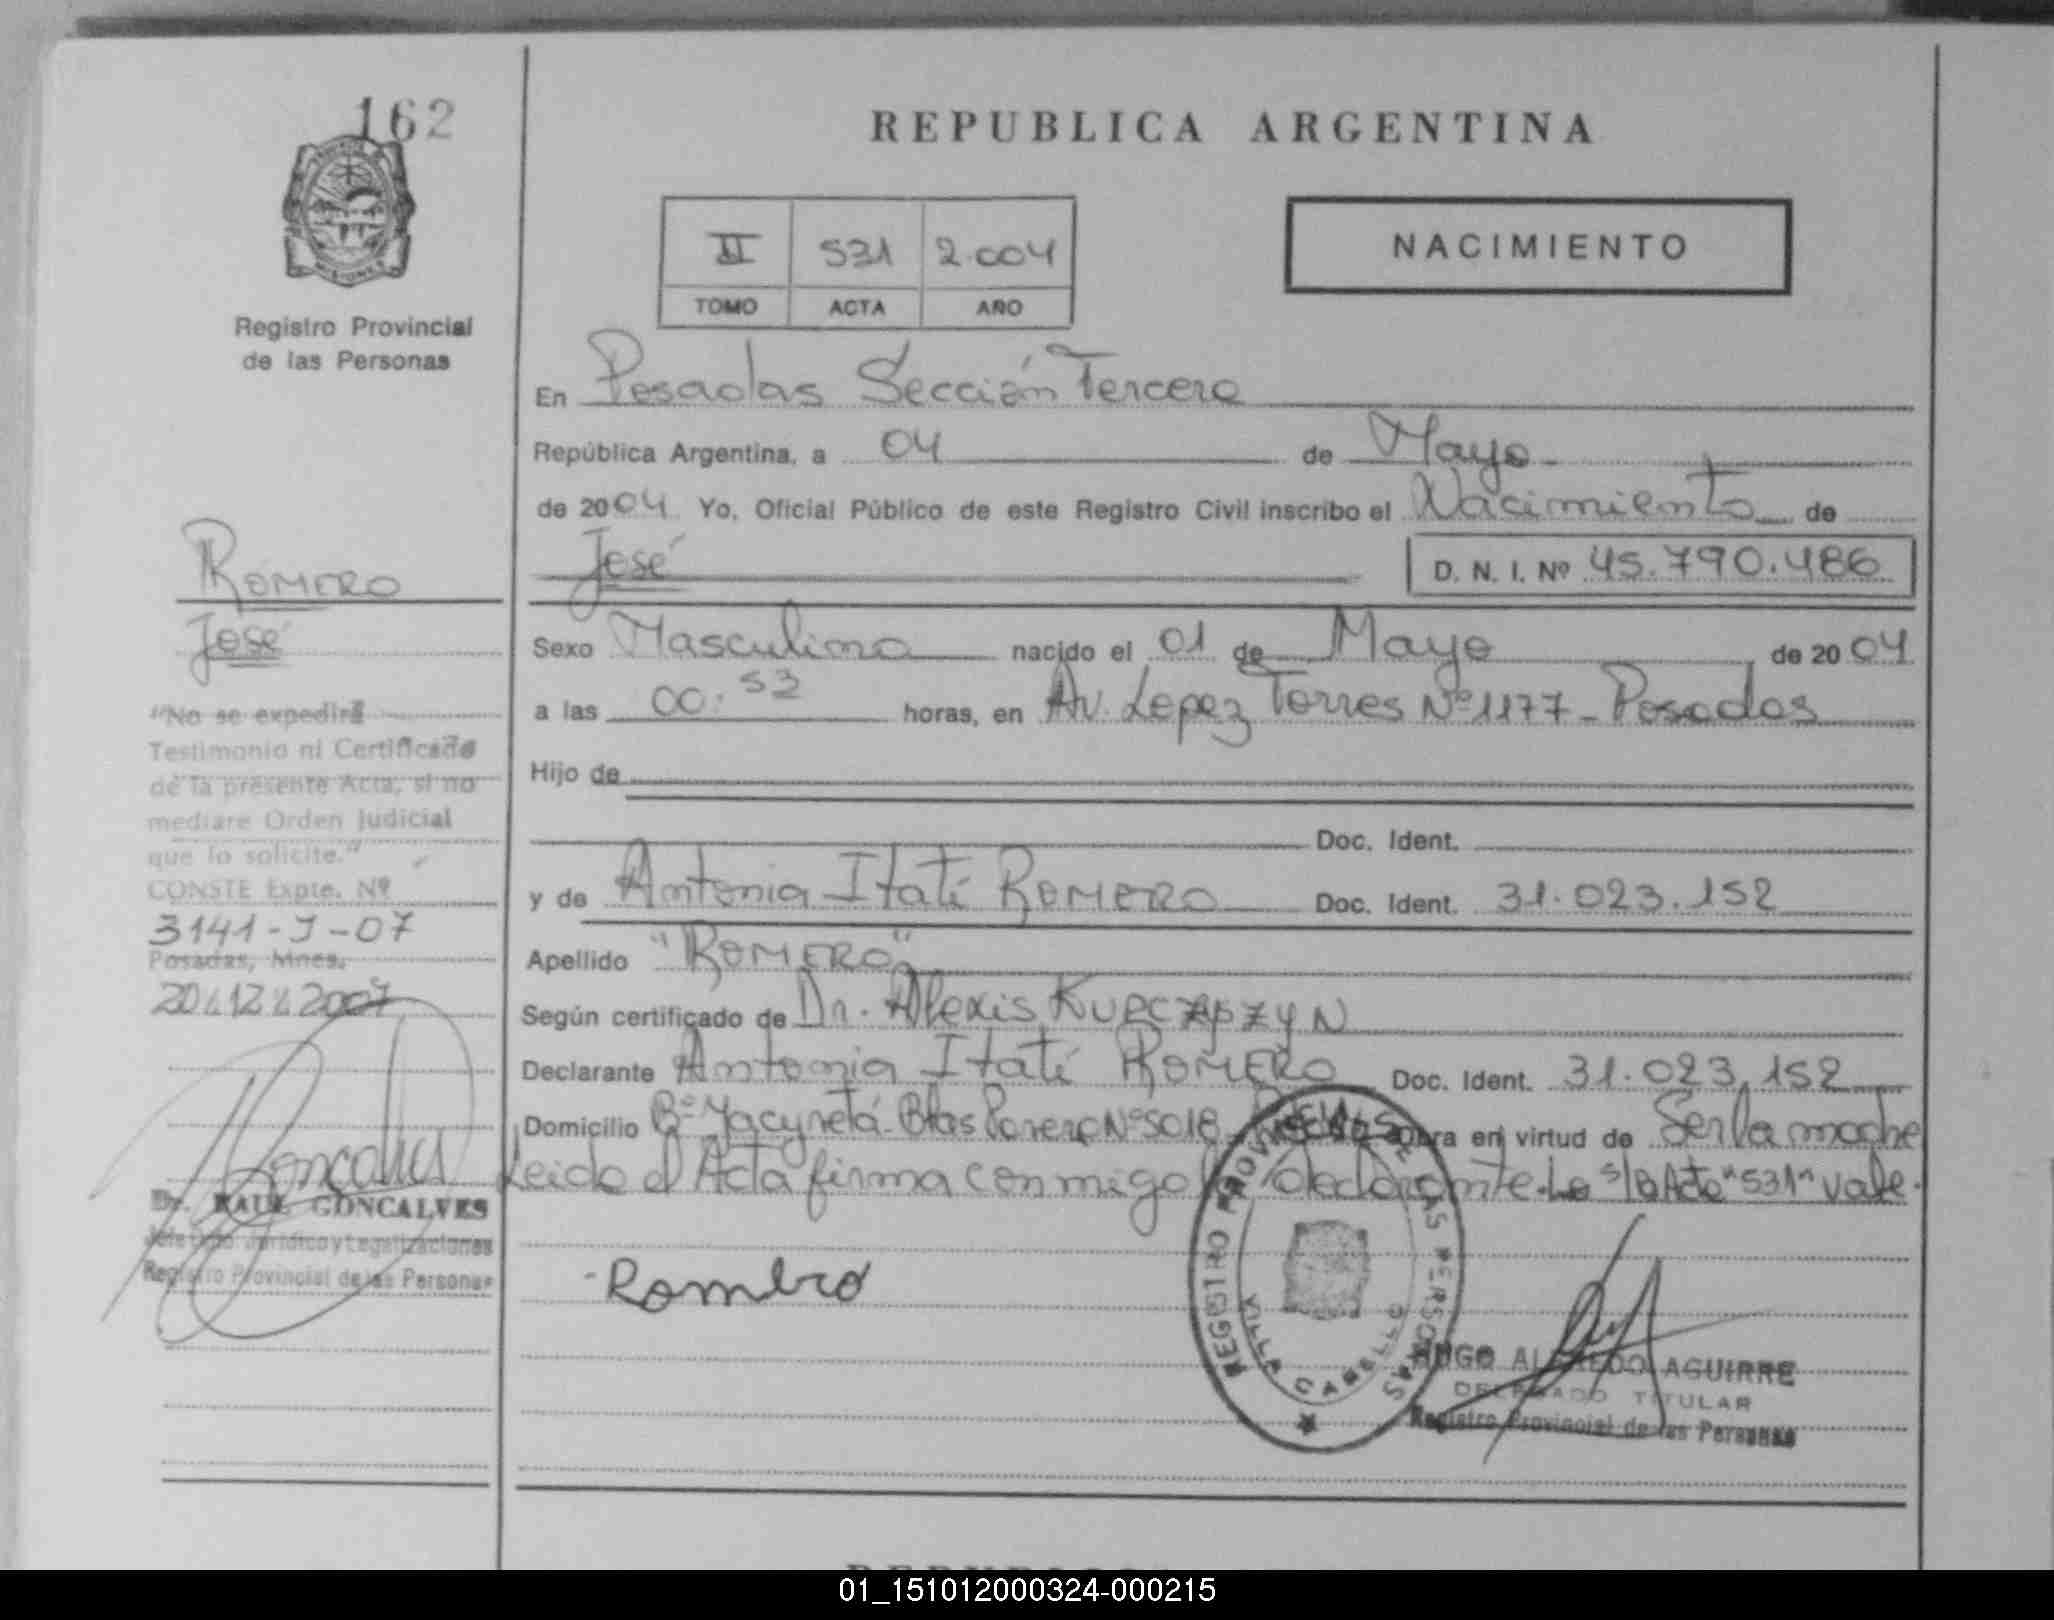 162
REPUBLICA ARGENTINA
II 531 2.004
TOMO ACTA AÑO
NACIMIENTO
Registro Provincial
de las Personas
En Posadas Sección Tercera
República Argentina, a 04 de Mayo
de 2004 Yo, Oficial Público de este Registro Civil inscribo el Nacimiento de
José D. N. I. Nº 45.790.486
Sexo Masculino nacido el 01 de Mayo de 2004
a las 00:53 horas, en Av. Lopez Torres Nº 1177 - Posadas
Hijo de
Doc. Ident.
y de Antonia Itatí ROMERO Doc. Ident. 31.023.152
Apellido "ROMERO"
Según certificado de Dr. Alexis
Declarante Antonia Itatí ROMERO Doc. Ident. 31.023.152
Domicilio Bº Yacyretá Blas Nº 5018 Obra en virtud de Ser la madre
Leido el Acta firma conmigo declarante. s/b Acta "531" vale.
Romero
REGISTRO PROVINCIAL DE LAS PERSONAS
VILLA CABELLO
HUGO ALFREDO AGUIRRE
DELEGADO TITULAR
Registro Provincial de las Personas
ROMERO
José
"No se expedirá
Testimonio ni Certificado
de la presente Acta, si no
mediare Orden Judicial
que lo solicite."
CONSTE Expte. Nº
3141-J-07
Posadas, Mnes.
20/12/2007
Dr. RAUL GONCALVES
Jefe Dpto. Jurídico y Legalizaciones
Registro Provincial de las Personas
01_151012000324-000215